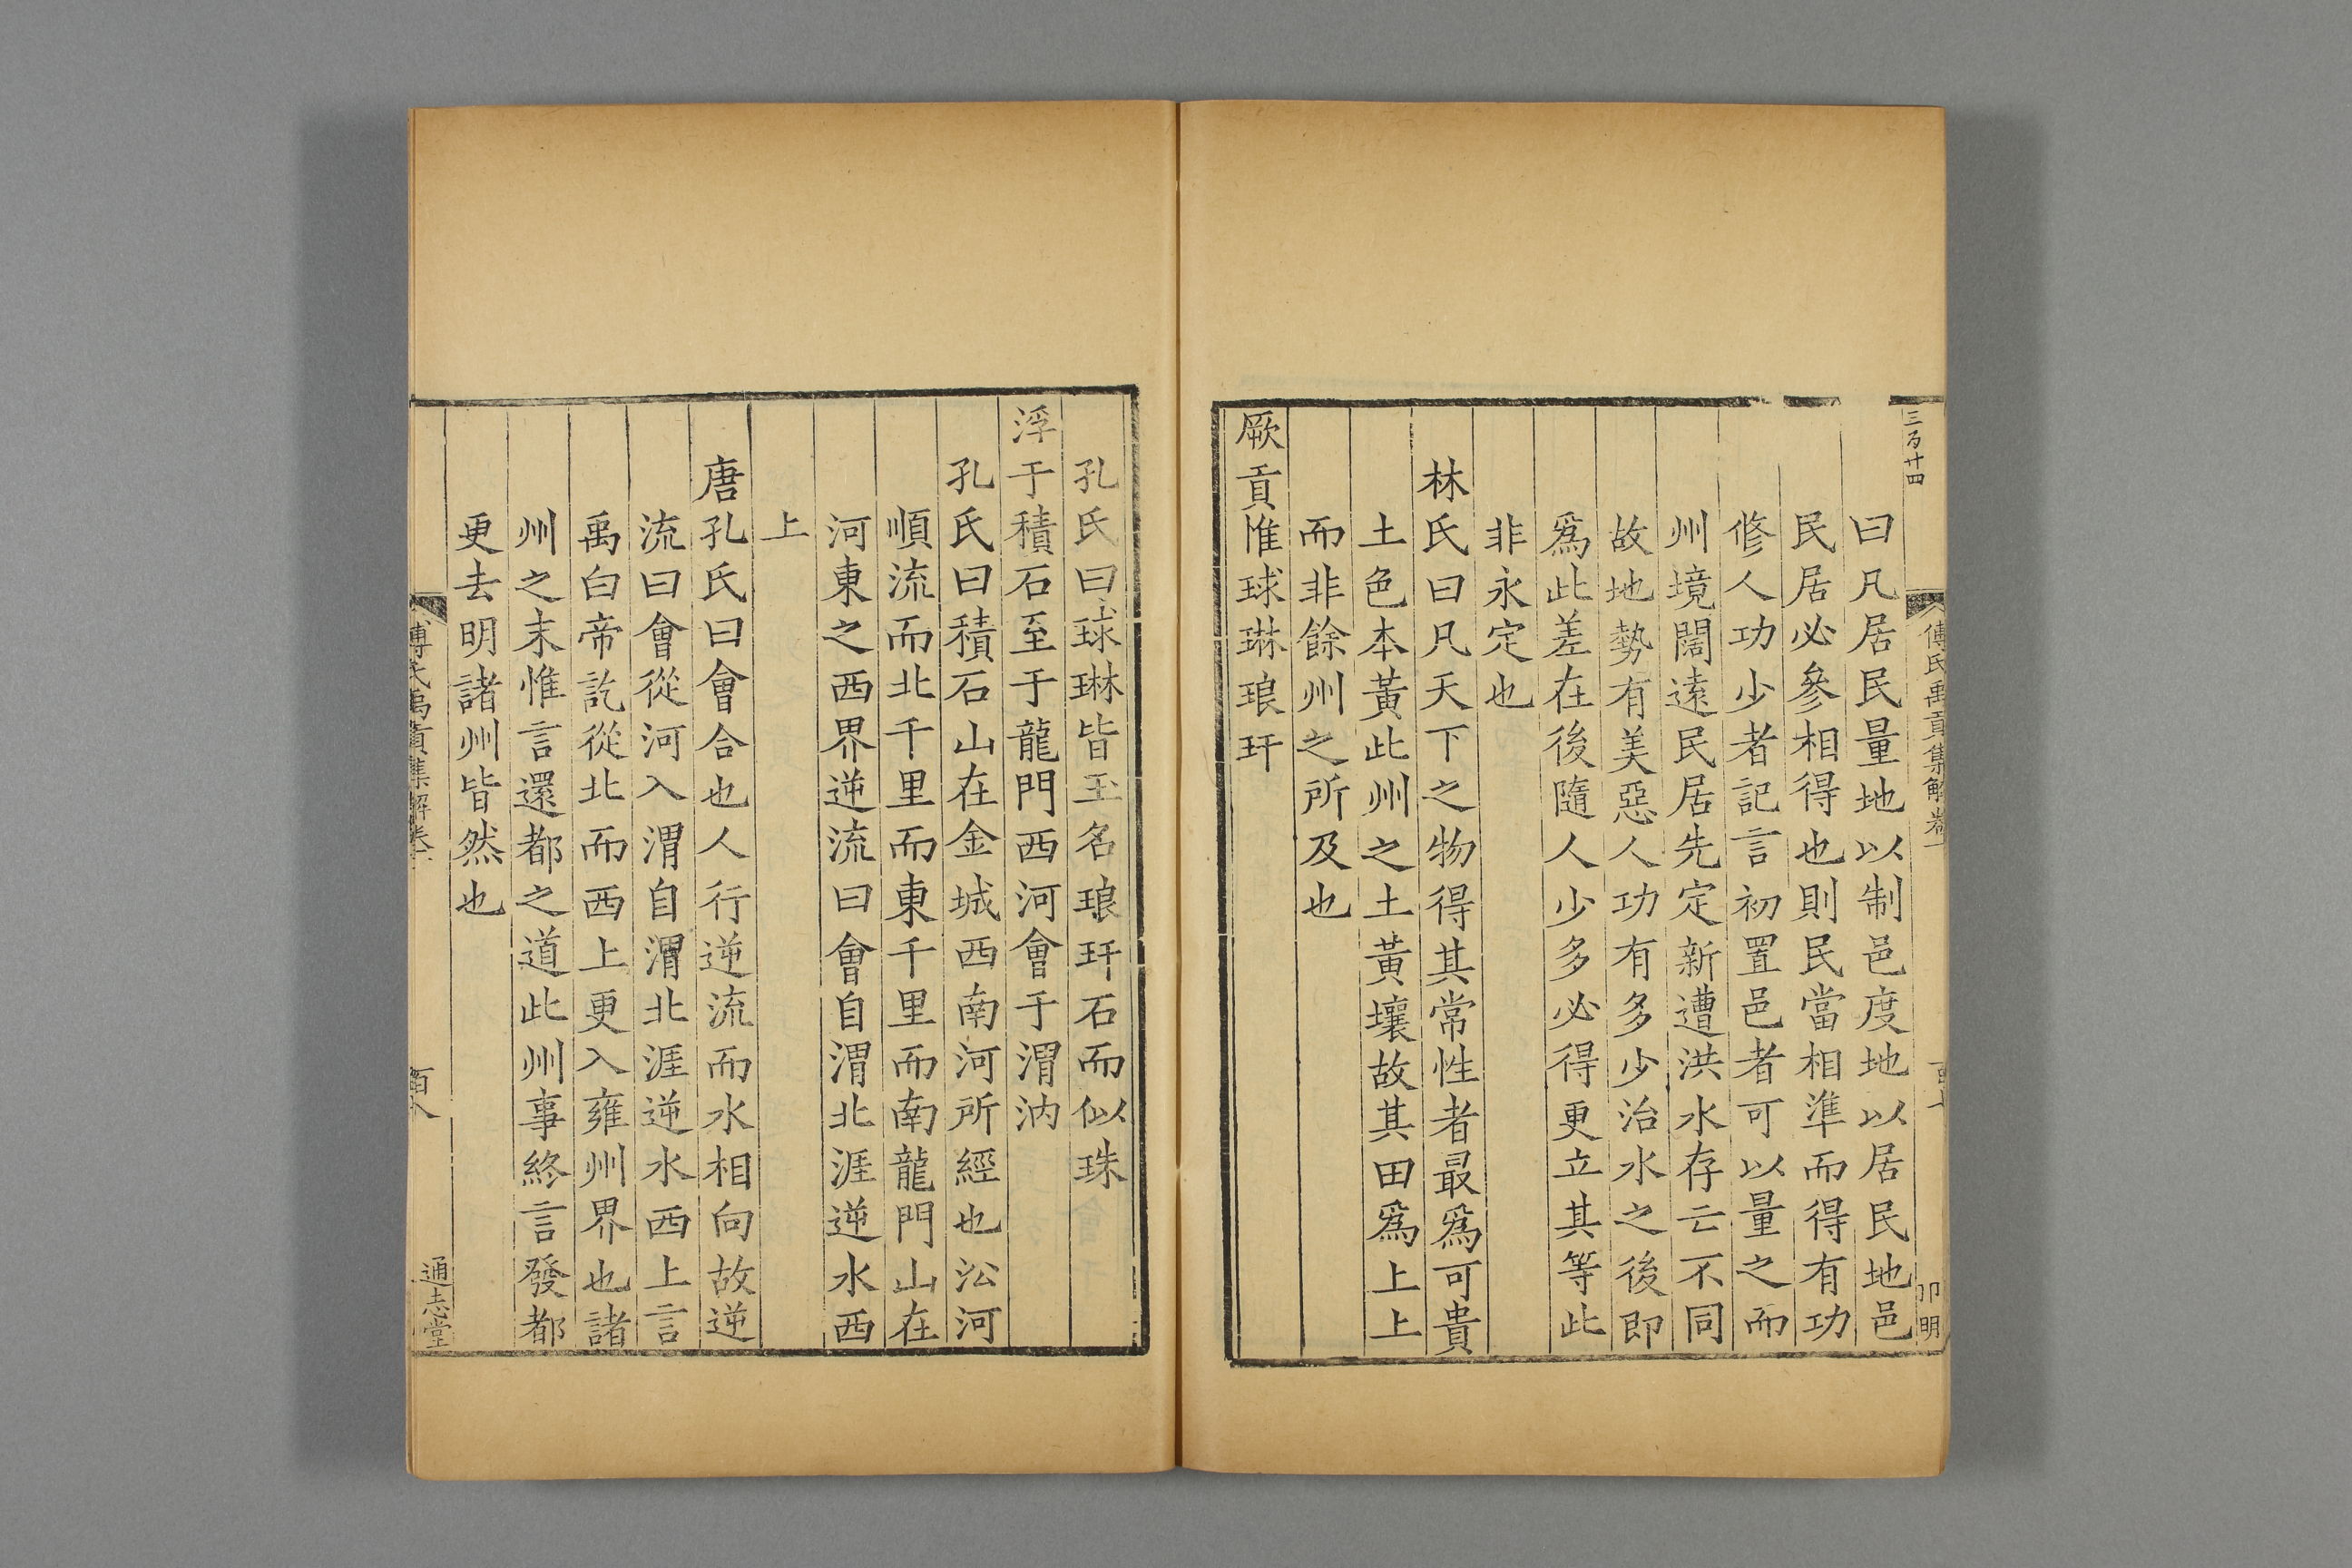 三百廿四
傅氏禹貢集解卷一
卯明
曰凡居民量地以制邑度地以居民地邑
民居必參相得也則民當相準而得有功
修人功少者記言初置邑者可以量之而
州境闊遠民居先定新遭洪水存亡不同
故地勢有美惡人功有多少治水之後即
爲此差在後隨人少多必得更立其等此
非永定也
林氏曰凡天下之物得其常性者最爲可貴
土色本黃此州之土黃壤故其田爲上上
而非餘州之所及也
厥貢惟球琳琅玕
孔氏曰球琳皆玉名琅玕石而似珠
浮于積石至于龍門西河會于渭汭
孔氏曰積石山在金城西南河所經也㳂河
順流而北千里而東千里而南龍門山在
河東之西界逆流曰會自渭北涯逆水西
上
唐孔氏曰會合也人行逆流而水相向故逆
流曰會從河入渭自渭北涯逆水西上言
禹白帝訖從北而西上更入雍州界也諸
州之末惟言還都之道此州事終言發都
更去明諸州皆然也
傅氏禹貢集解卷
百八
通志堂